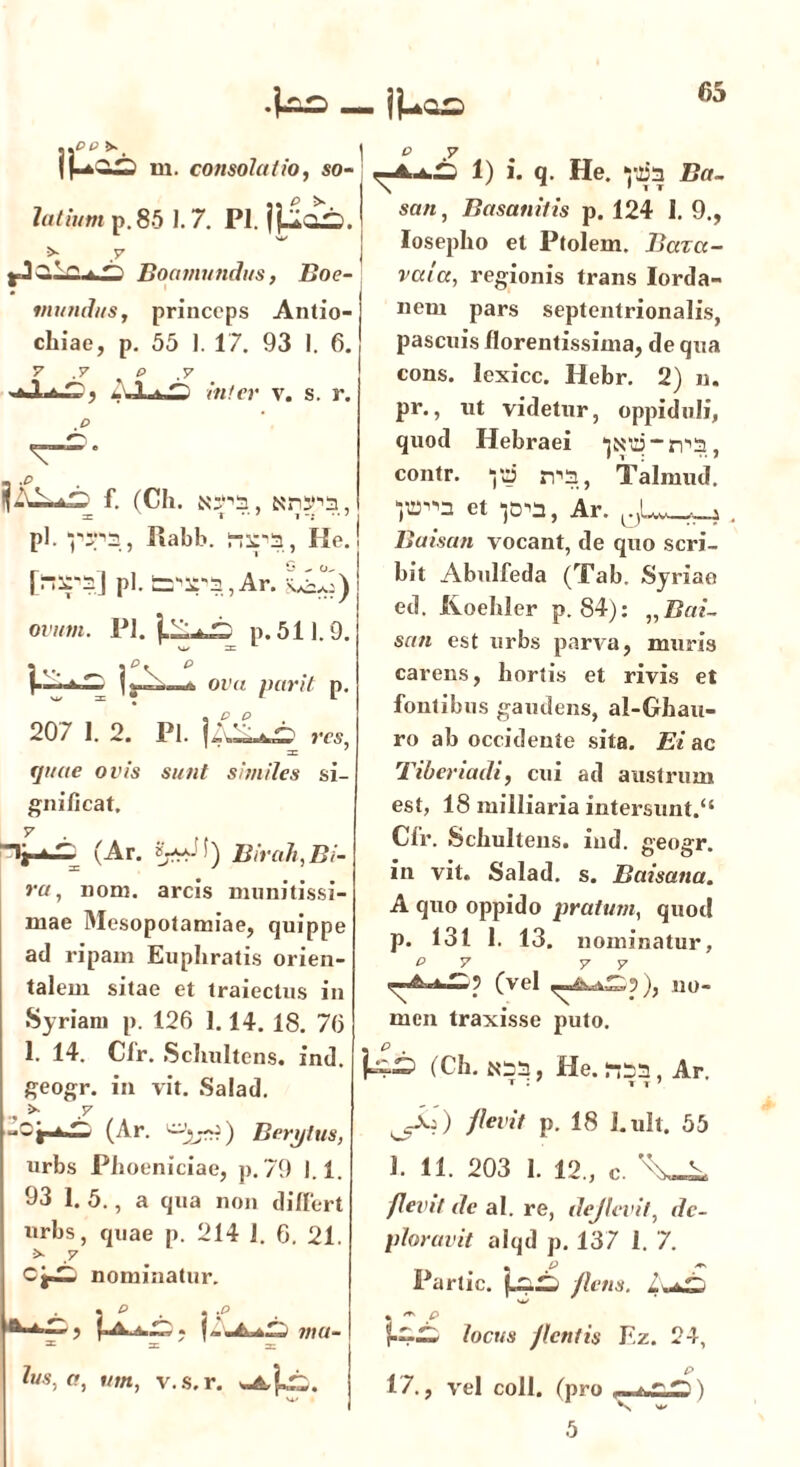 .ܒܟܐ — ܒܘܝܐܐ
65
ܒܘܝܐܐ m. consolatio, so-
latium p. 85 l. 7. Pl. ܒܘܝܐܐ.
ܒܝܡܘܢܕ Boamundus, Boe-
mundus, princeps Antio-
chiae, p. 55 l. 17. 93 l. 6.
ܒܝܢܝ, ܒܝܢܬ inter v. s. r.
ܒܝܢ.
ܒܝܥܬܐ f. (Ch. בֵּיעָא, בֵּיעֲתָא,
pl. בֵּיעִין, Rabb. בֵּיצָה, He.
[בֵּיצָה] pl. בֵּיצִים, Ar. بَيْضَة)
ovum. Pl. ܒܝܥܐ p. 51 l. 9.
ova parit p.
207 l. 2. Pl. ܒܝܥܬܐ res,
quae ovis sunt similes si-
gnificat.
ܒܝܪܗ (Ar. البيرة) Birah, Bi-
ra, nom. arcis munitissi-
mae Mesopotamiae, quippe
ad ripam Euphratis orien-
talem sitae et traiectus in
Syriam p. 126 l. 14. 18. 76
l. 14. Cfr. Schultens. ind.
geogr. in vit. Salad.
ܒܝܪܘܬ (Ar. بيروت) Berytus,
urbs Phoeniciae, p. 79 l. 1.
93 l. 5., a qua non differt
urbs, quae p. 214 l. 6. 21.
nominatur.
ܒܝܫ, ܒܝܫܐ, ܒܝܫܬܐ ma-
lus, a, um, v. s. r. ܒܐܫ.
ܒܝܫܢ 1) i. q. He. בָּשָׁן Ba-
san, Basanitis p. 124 l. 9.,
Iosepho et Ptolem. Bata-
vaia, regionis trans Iorda-
nem pars septentrionalis,
pascuis florentissima, de qua
cons. lexicc. Hebr. 2) n.
pr., ut videtur, oppiduli,
quod Hebraei בֵּית־שְׁאָן,
contr. בֵּית שָׁן, Talmud.
ביישן et ביסן, Ar. بيسان
Baisan vocant, de quo scri-
bit Abulfeda (Tab. Syriae
ed. Koehler p. 84): „Bai-
san est urbs parva, muris
carens, hortis et rivis et
fontibus gaudens, al-Ghau-
ro ab occidente sita. Ei ac
Tiberiadi, cui ad austrum
est, 18 milliaria intersunt.“
Cfr. Schultens. ind. geogr.
in vit. Salad. s. Baisana.
A quo oppido pratum, quod
p. 131 l. 13. nominatur,
ܕܒܝܫܢ (vel ܕܒܝܫܢ), no-
men traxisse puto.
ܒܟܐ (Ch. בְּכָא, He. בָּכָה, Ar.
بكى) flevit p. 18 l. ult. 55
l. 11. 203 l. 12., c. ܥܠ
flevit de al. re, deflevit, de-
ploravit alqd p. 137 l. 7.
Partic. ܒܟܐ flens. ܒܝܬ
ܒܟܐ locus flentis Ez. 24,
17., vel coll. (pro ܒܟܝܢ)
5